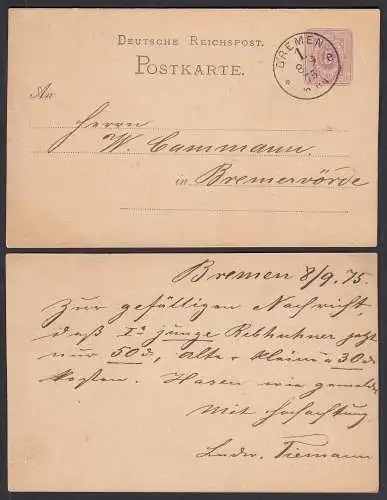 DEUTSCHE REICHSPOST.
POSTKARTE.
BREMEN
1.
8 9
75
An
Herrn
W. Cammann.
in Bremervörde
Bremen 8/9. 75.
Zur gefälligen Nachricht,
daß Ia junge Rebhühner jetzt
nur 50 d, alte + kleine a 30 d
kosten. Hasen wie gemeldet
Mit Hochachtung
Ludw. Tiemann